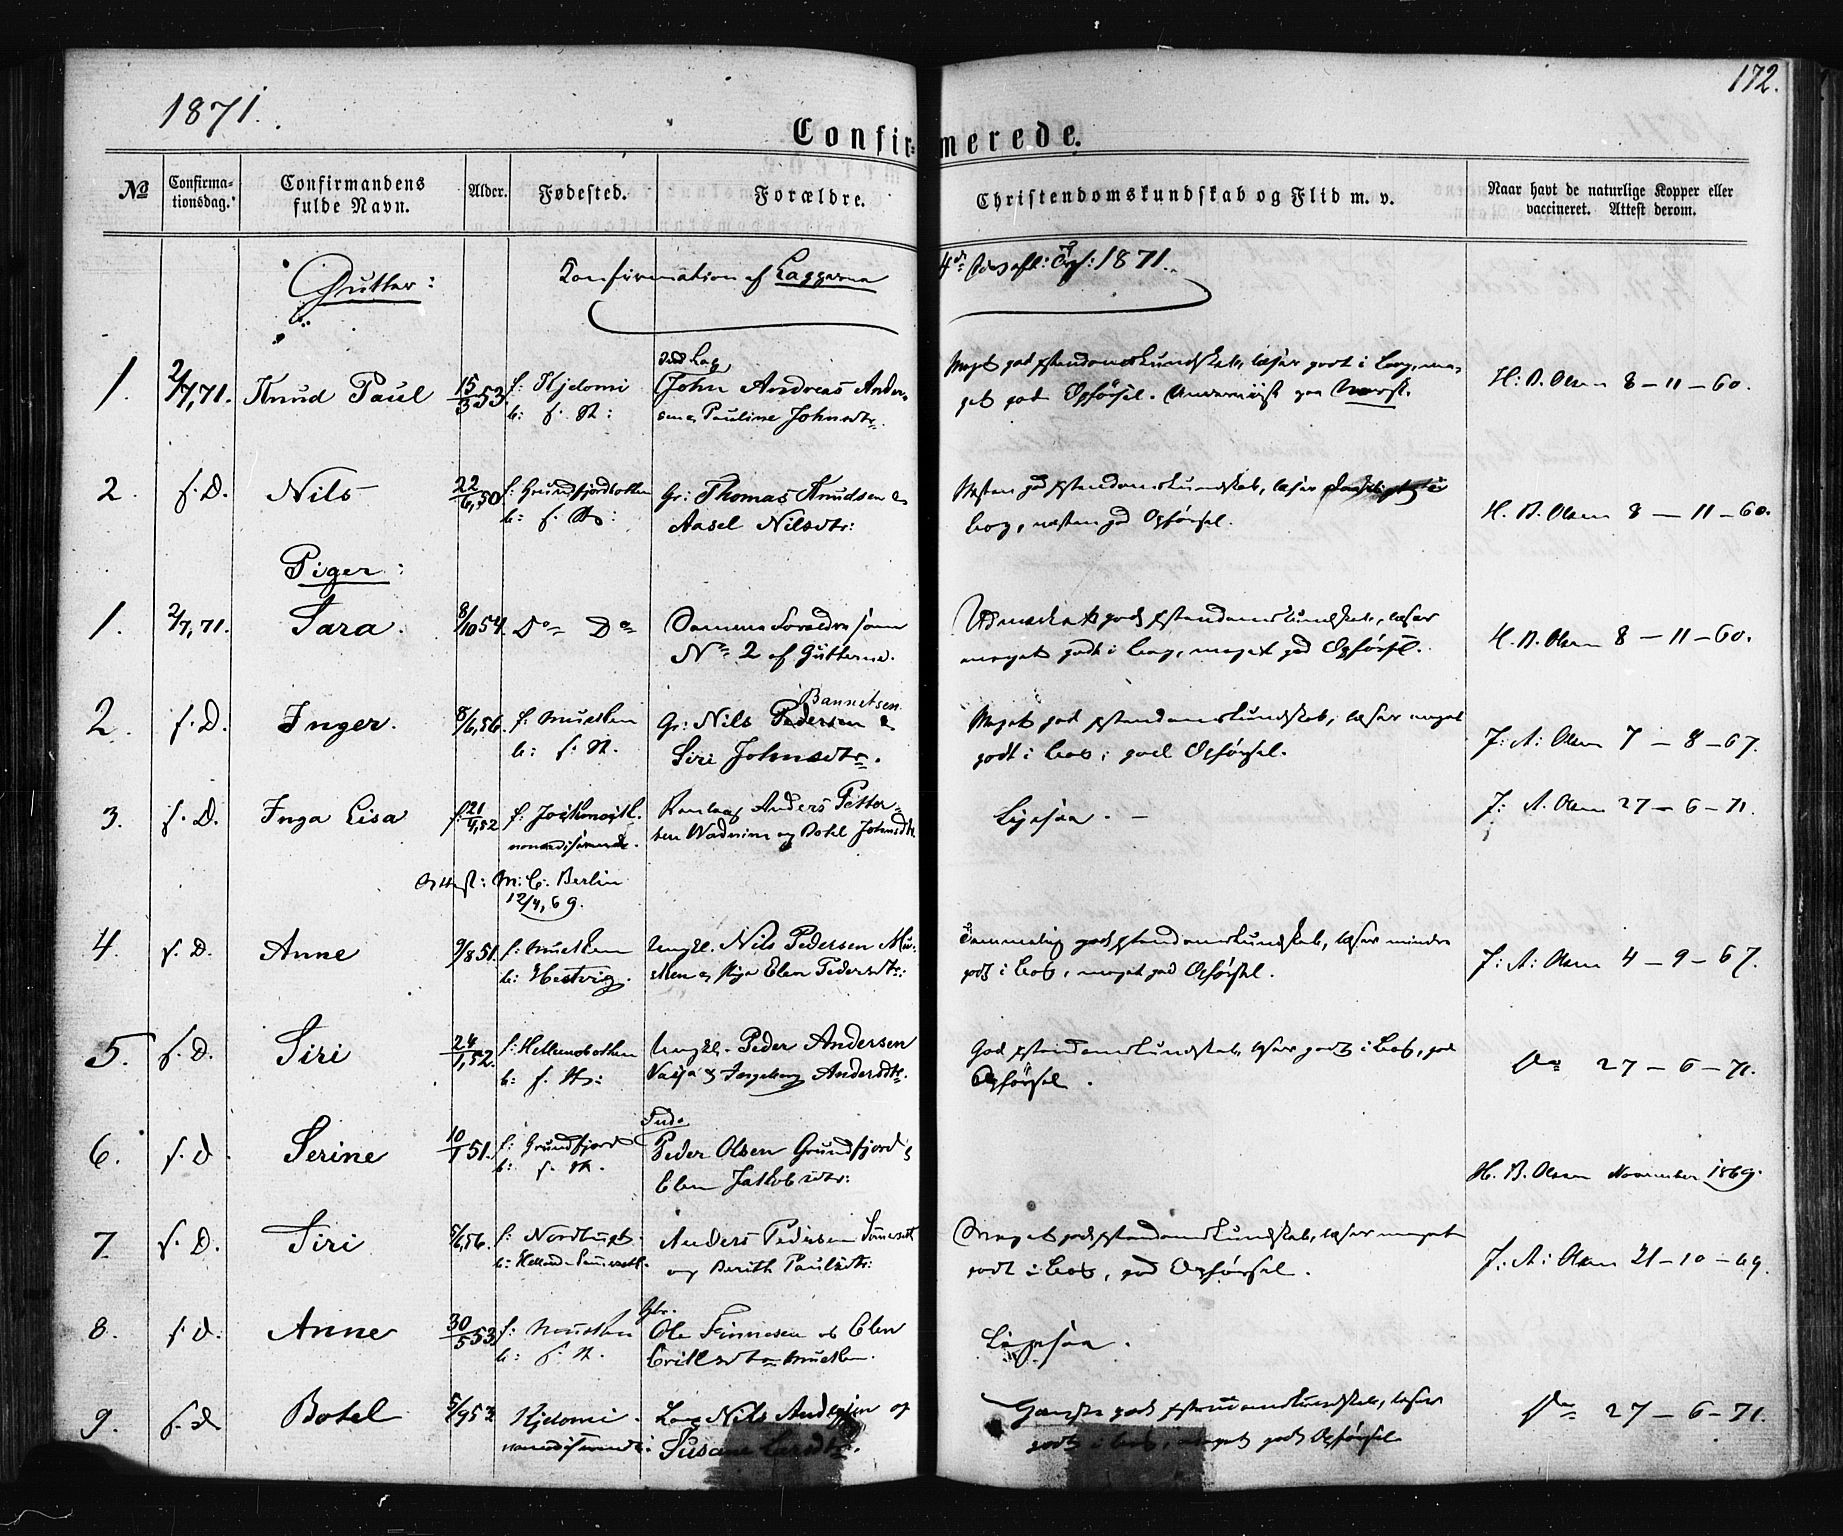 1871.
172.
Confirmerede.
No
Confirmationsdag.
Confirmandens fulde Navn.
Alder.
Fødested.
Forældre.
Christendomskundskab og Flid m. v.
Naar havt de naturlige Kopper eller vaccineret. Attest derom.
Gutter:
Konfirmation af Lapperne 4de 1871.
1. 2/7, 71. Knud Paul 15/3 53. f: Kjelomi John Andreas Ander-
b: f. St: sen Pauline Johnsdtr.
Meget god Kristendomskundskab, læser godt i Bog, me-
get god Opførsel. Norsk.
H. B. Olsen 8-11-60.
2. s. D. Nils 22/6, 50 f: Grundfjordbotten Gr: Thomas Knudsen &
b: f. St: Aasel Nilsdtr:
Næsten god Kristendomskundskab, læser
Bog, næsten god Opførsel.
H. B. Olsen 8-11-60.
Piger:
1. 2/7, 71. Sara. 8/10 54. Do Do Samme Forældre som
No 2 af Gutterne.
Udmærket god Kristendomskundskab, læser
meget godt i Bog, meget god Opførsel.
H. B. Olsen 8-11-60.
2. s. D. Inger. 8/6, 56. f: Musken Gr: Nils Pedersen &
Bannetsen
b: f. St. Siri Johnsdtr.
Meget god Kristendomskundskab, læser meget
godt i Bog, god Opførsel.
J: A: Olsen 7-8-67.
3. s. D. Inga Lisa f. 21/4, 52 f: Anders Petter-
sen og Botel Johnsdtr
Ligesaa.
J: A. Olsen 27-6-71.
Attest: M. C. Berlin
12/4, 69.
4. s. D. Anne 9/8 51. f: Musken Ungkl. Nils Pedersen Mu-
b: Hestvig. sken og Pige Elen Pedersdtr:
Temmelig god Kristendomskundskab, læser mindre
godt i Bog, meget god Opførsel.
J: A: Olsen 4-9-67.
5. s. D. Siri 24/1, 52. f: Hellemobotten Ungkl. Peder Andersen
b: f. St: & Ingeborg Andersdtr.
God Kristendomskundskab, læser godt i Bog, god
Opførsel.
Do 27-6-71.
6. s. D. Serine 10/1 51. f: Grundfjord Peder Olsen Grundfjord &
b: f. St. Elen Jakobsdtr:
H. B. Olsen November 1869.
7. s. D. Siri 5/6, 56. f: Nordbugt Anders Pedersen
b: og Berith Paulsdtr:
Meget god Kristendomskundskab, læser meget
godt i Bog, god Opførsel.
J: A: Olsen 21-10-69.
8. s. D. Anne 30/5 53. f: Musken Gbr. Ole Finnesen og Elen
b: f. St. Musken.
Ligesaa.
9. s. D. Botel 5/9 53 Kjelomi. Nils Andersen og
Susane
Ganske god Kristendomskundskab, læser
godt i Bog, meget god Opførsel
Do 27-6-71.